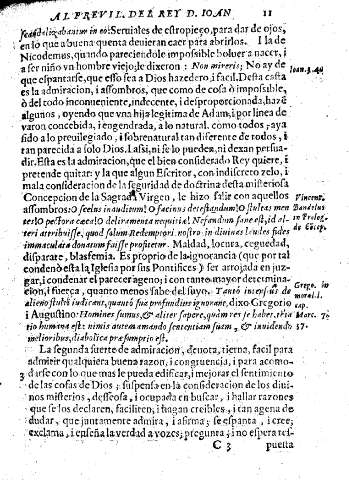 AL PREVIL. DEL REY D. IOAN 11
scandalizabantur in eo: Seruiales de estropieço, para dar de ojos,
en lo que a buena quenta deuieran caer para abrirlos. I la de
Nicodemus, quando pareciendole impossible boluer a nacer, i
a ser niño vn hombre viejo; le dixeron: Non mireris; No ay de
que espantarse, que esso sea a Dios hazedero, i facil. Desta casta
es la admiracion, i assombros, que como de cosa ò impossible,
ò del todo inconueniente, indecente, i desproporcionada, hazē
algunos, oyendo que vna hija legitima de Adam, i por linea de
varon concebida, i engendrada, a lo natural, como todos, aya
sido a lo preuilegiado, i sobrenatural tan diferente de todos, i
tan parecida a solo Dios. I assi, ni se lo pueden, ni dexan persua-
dir. Esta es la admiracion, que el bien considerado Rey quiere, i
pretende quitar: y la que algun Escritor, con indiscreto zelo, i
mala consideracion de la seguridad de doctrina desta misteriosa
Concepcion de la Sagrada Virgen, le hizo salir con aquellos
assombros: O scelus inauditum! O facinus detestandum! O stultea men
te! O pectora cæca! O deliramenta nequitia! Nefandum sane est, id al-
teri attribuisse, quod solum Redemptori nostro in diuinis laudes fides
immaculata donatum fuisse profitetur. Maldad, locura, ceguedad,
disparate, blasfemia. Es proprio de la ignorancia (que por tal
condenò esta la Iglesia por sus Pontifices) ser arrojada en juz-
gar, i condenar el parecer ageno; i con tanto mayor determina-
cion, i fuerça, quanto menos sabe del suyo. Tanto intensius de
alieno stultè iudicant, quanto sua profundius ignorant, dixo Gregorio
i Augustino: Homines sumus, & aliter sapere, quàm res se habet, tēta
tio humana est: nimis autem amando sententiam suam, & inuidendo
melioribus, diabolica præsumptio est.
La segunda suerte de admiracion, deuota, tierna, facil para
admitir qualquiera buena razon, i congruencia, i para acomo-
darse con lo que mas le pueda edificar, i mejorar el sentimiento
de las cosas de Dios; suspensa en la consideracion de los diui-
nos misterios, desseosa, i ocupada en buscar, i hallar razones
que se los declaren, faciliten, i hagan creibles, i tan agena de
dudar, que juntamente admira, i afirma; se espanta, i cree;
exclama, i enseña la verdad a vozes; pregunta; i no espera res-
C 3 puesta
Ioan. 3.
Vincent.
Bandelus
in Prolog.
de Cōcep.
Grego. in
moral. l.
cap.
Marc. 7.
37.
3